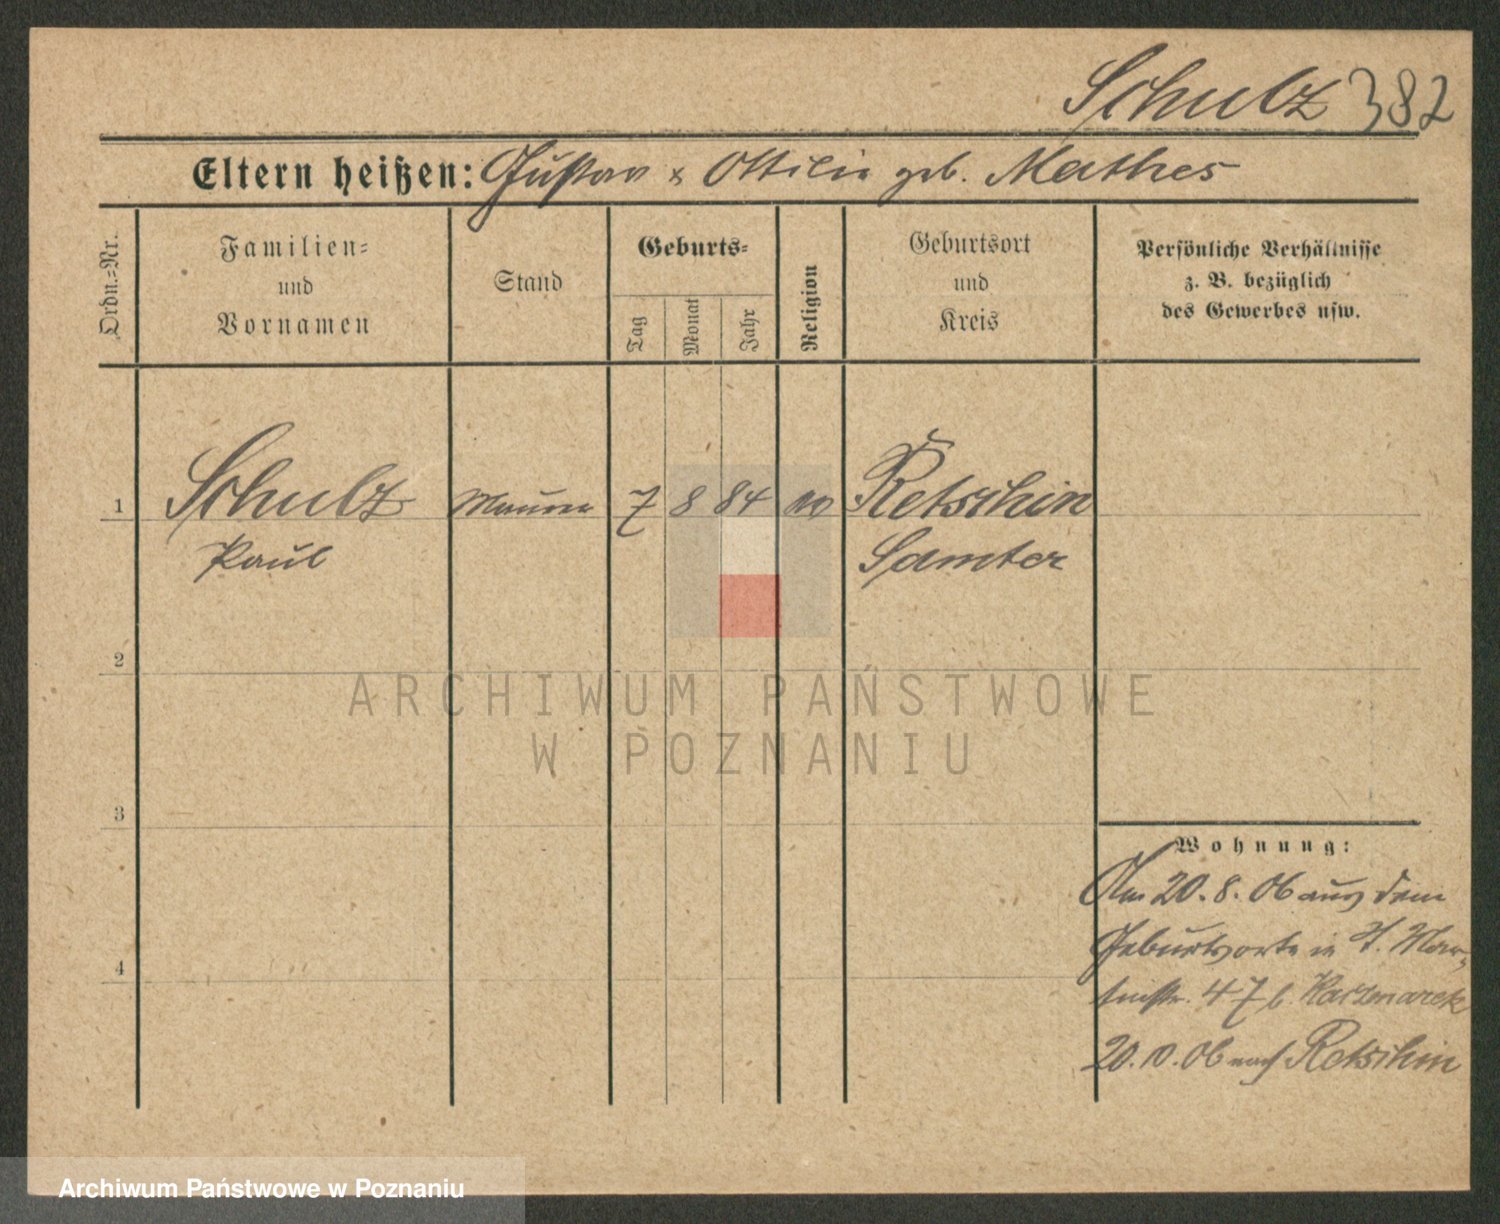 Schulz 382
Eltern heißen: Gustav & Ottilie geb. Mathes
Ordn.-Nr.
Familien-
und
Vornamen
Stand
Geburts-
Tag
Monat
Jahr
Religion
Geburtsort
und
Kreis
Persönliche Verhältnisse
z. B. bezüglich
des Gewerbes usw.
1 Schulz Maurer 7 8 84 Retschin
Paul Samter
2
ARCHIWUM PAŃSTWOWE
W POZNANIU
3
4
Wohnung:
Am 20.8.06 aus dem
Geburtsorte in St. Mar-
tinstr. 47 b. Kaczmarek
20.10.06 nach Retschin
Archiwum Państwowe w Poznaniu